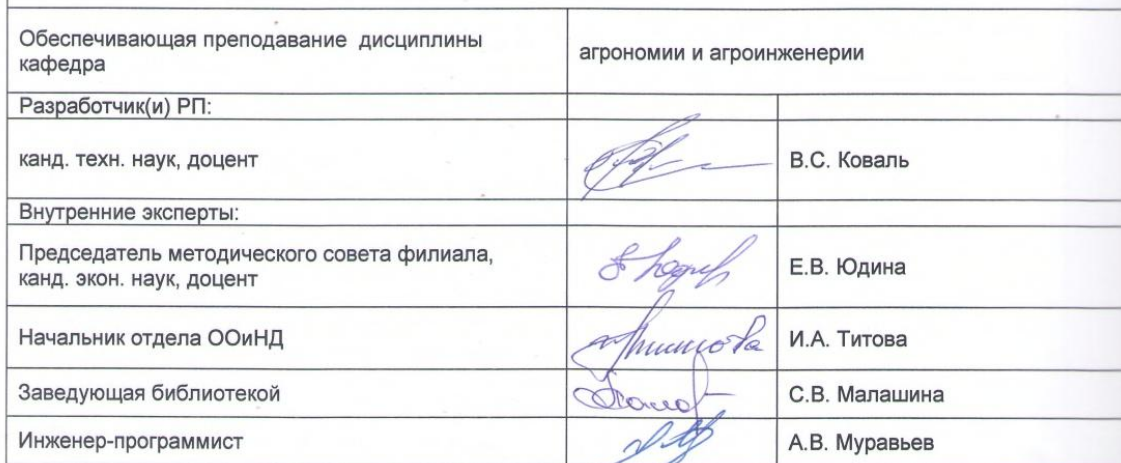 Обеспечивающая преподавание дисциплины
кафедра
агрономии и агроинженерии
Разработчик(и) РП:
канд. техн. наук, доцент
В.С. Коваль
Внутренние эксперты:
Председатель методического совета филиала,
канд. экон. наук, доцент
Е.В. Юдина
Начальник отдела ООиНД
И.А. Титова
Заведующая библиотекой
С.В. Малашина
Инженер-программист
А.В. Муравьев